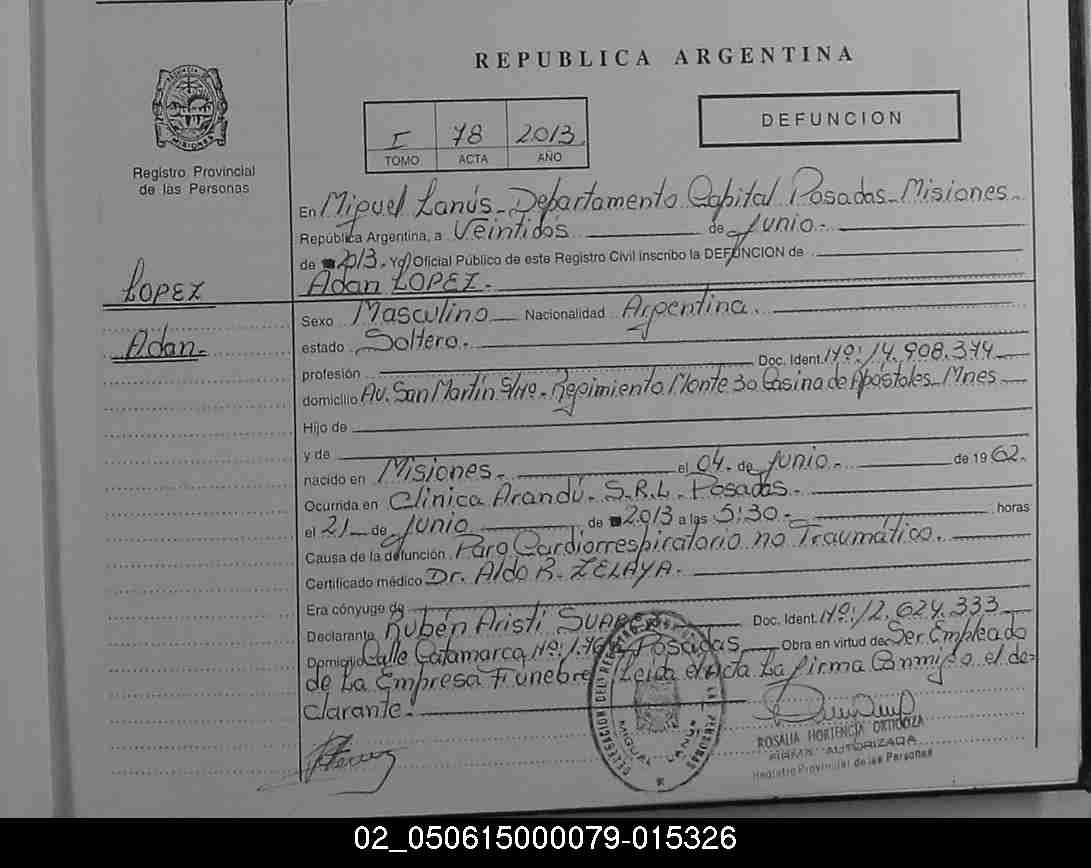 REPUBLICA ARGENTINA
MISIONES
Registro Provincial
de las Personas
I 78 2013
TOMO ACTA AÑO
DEFUNCION
En Miguel Lanús - Departamento Capital Posadas - Misiones -
República Argentina, a Veintidós de Junio.-
de 2013. Yo Oficial Público de este Registro Civil inscribo la DEFUNCION de
LOPEZ
Adan LOPEZ.-
Adan.
Sexo Masculino Nacionalidad Argentina.
estado Soltero.
profesión Doc. Ident. Nº: 14.908.374
domicilio Av. San Martín S/Nº - Regimiento Monte 30 Casina de Apostoles - Mnes
Hijo de
y de
nacido en Misiones.- el 04. de Junio.- de 1962.
Ocurrida en Clínica Arandú. S.R.L. Posadas.-
el 21 de Junio de 2013 a las 5:30.- horas
Causa de la defunción Paro Cardiorrespiratorio no Traumático.
Certificado médico Dr. Aldo R. ZELAYA.
Era cónyuge de
Declarante Rubén Aristi SUAREZ Doc. Ident. Nº: 12.624.333
Domicilio Calle Catamarca Nº: Posadas Obra en virtud de Ser Empleado
de La Empresa Funebre Leida el Acta La firma Conmigo el de-
clarante.-
DELEGACION DEL REGISTRO DE LAS PERSONAS
MIGUEL LANUS
ROSALIA HORTENCIA ORTIGOZA
FIRMA AUTORIZADA
Registro Provincial de las Personas
02_050615000079-015326